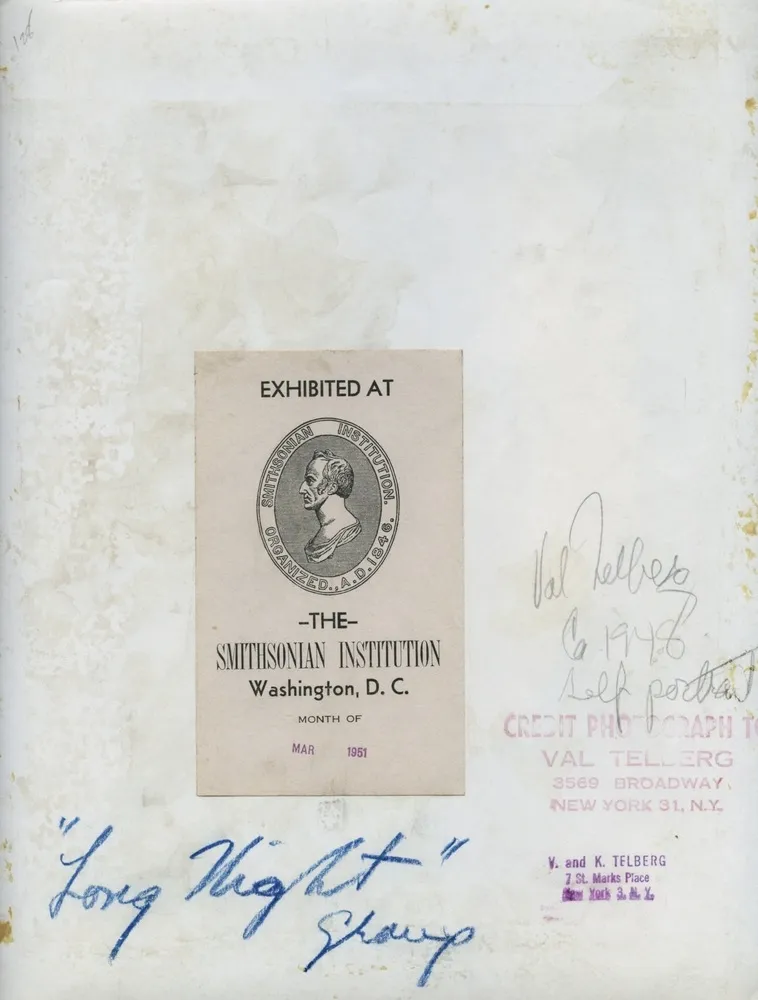 126
EXHIBITED AT
SMITHSONIAN INSTITUTION.
ORGANIZED., A.D. 1846.
–THE–
SMITHSONIAN INSTITUTION
Washington, D. C.
MONTH OF
MAR 1951
Val Telberg
Ca 1948
self portrait
CREDIT PHOTOGRAPH TO
VAL TELBERG
3569 BROADWAY
NEW YORK 31, N.Y.
V. and K. TELBERG
7 St. Marks Place
New York 3, N. Y.
"Long Night"
Group